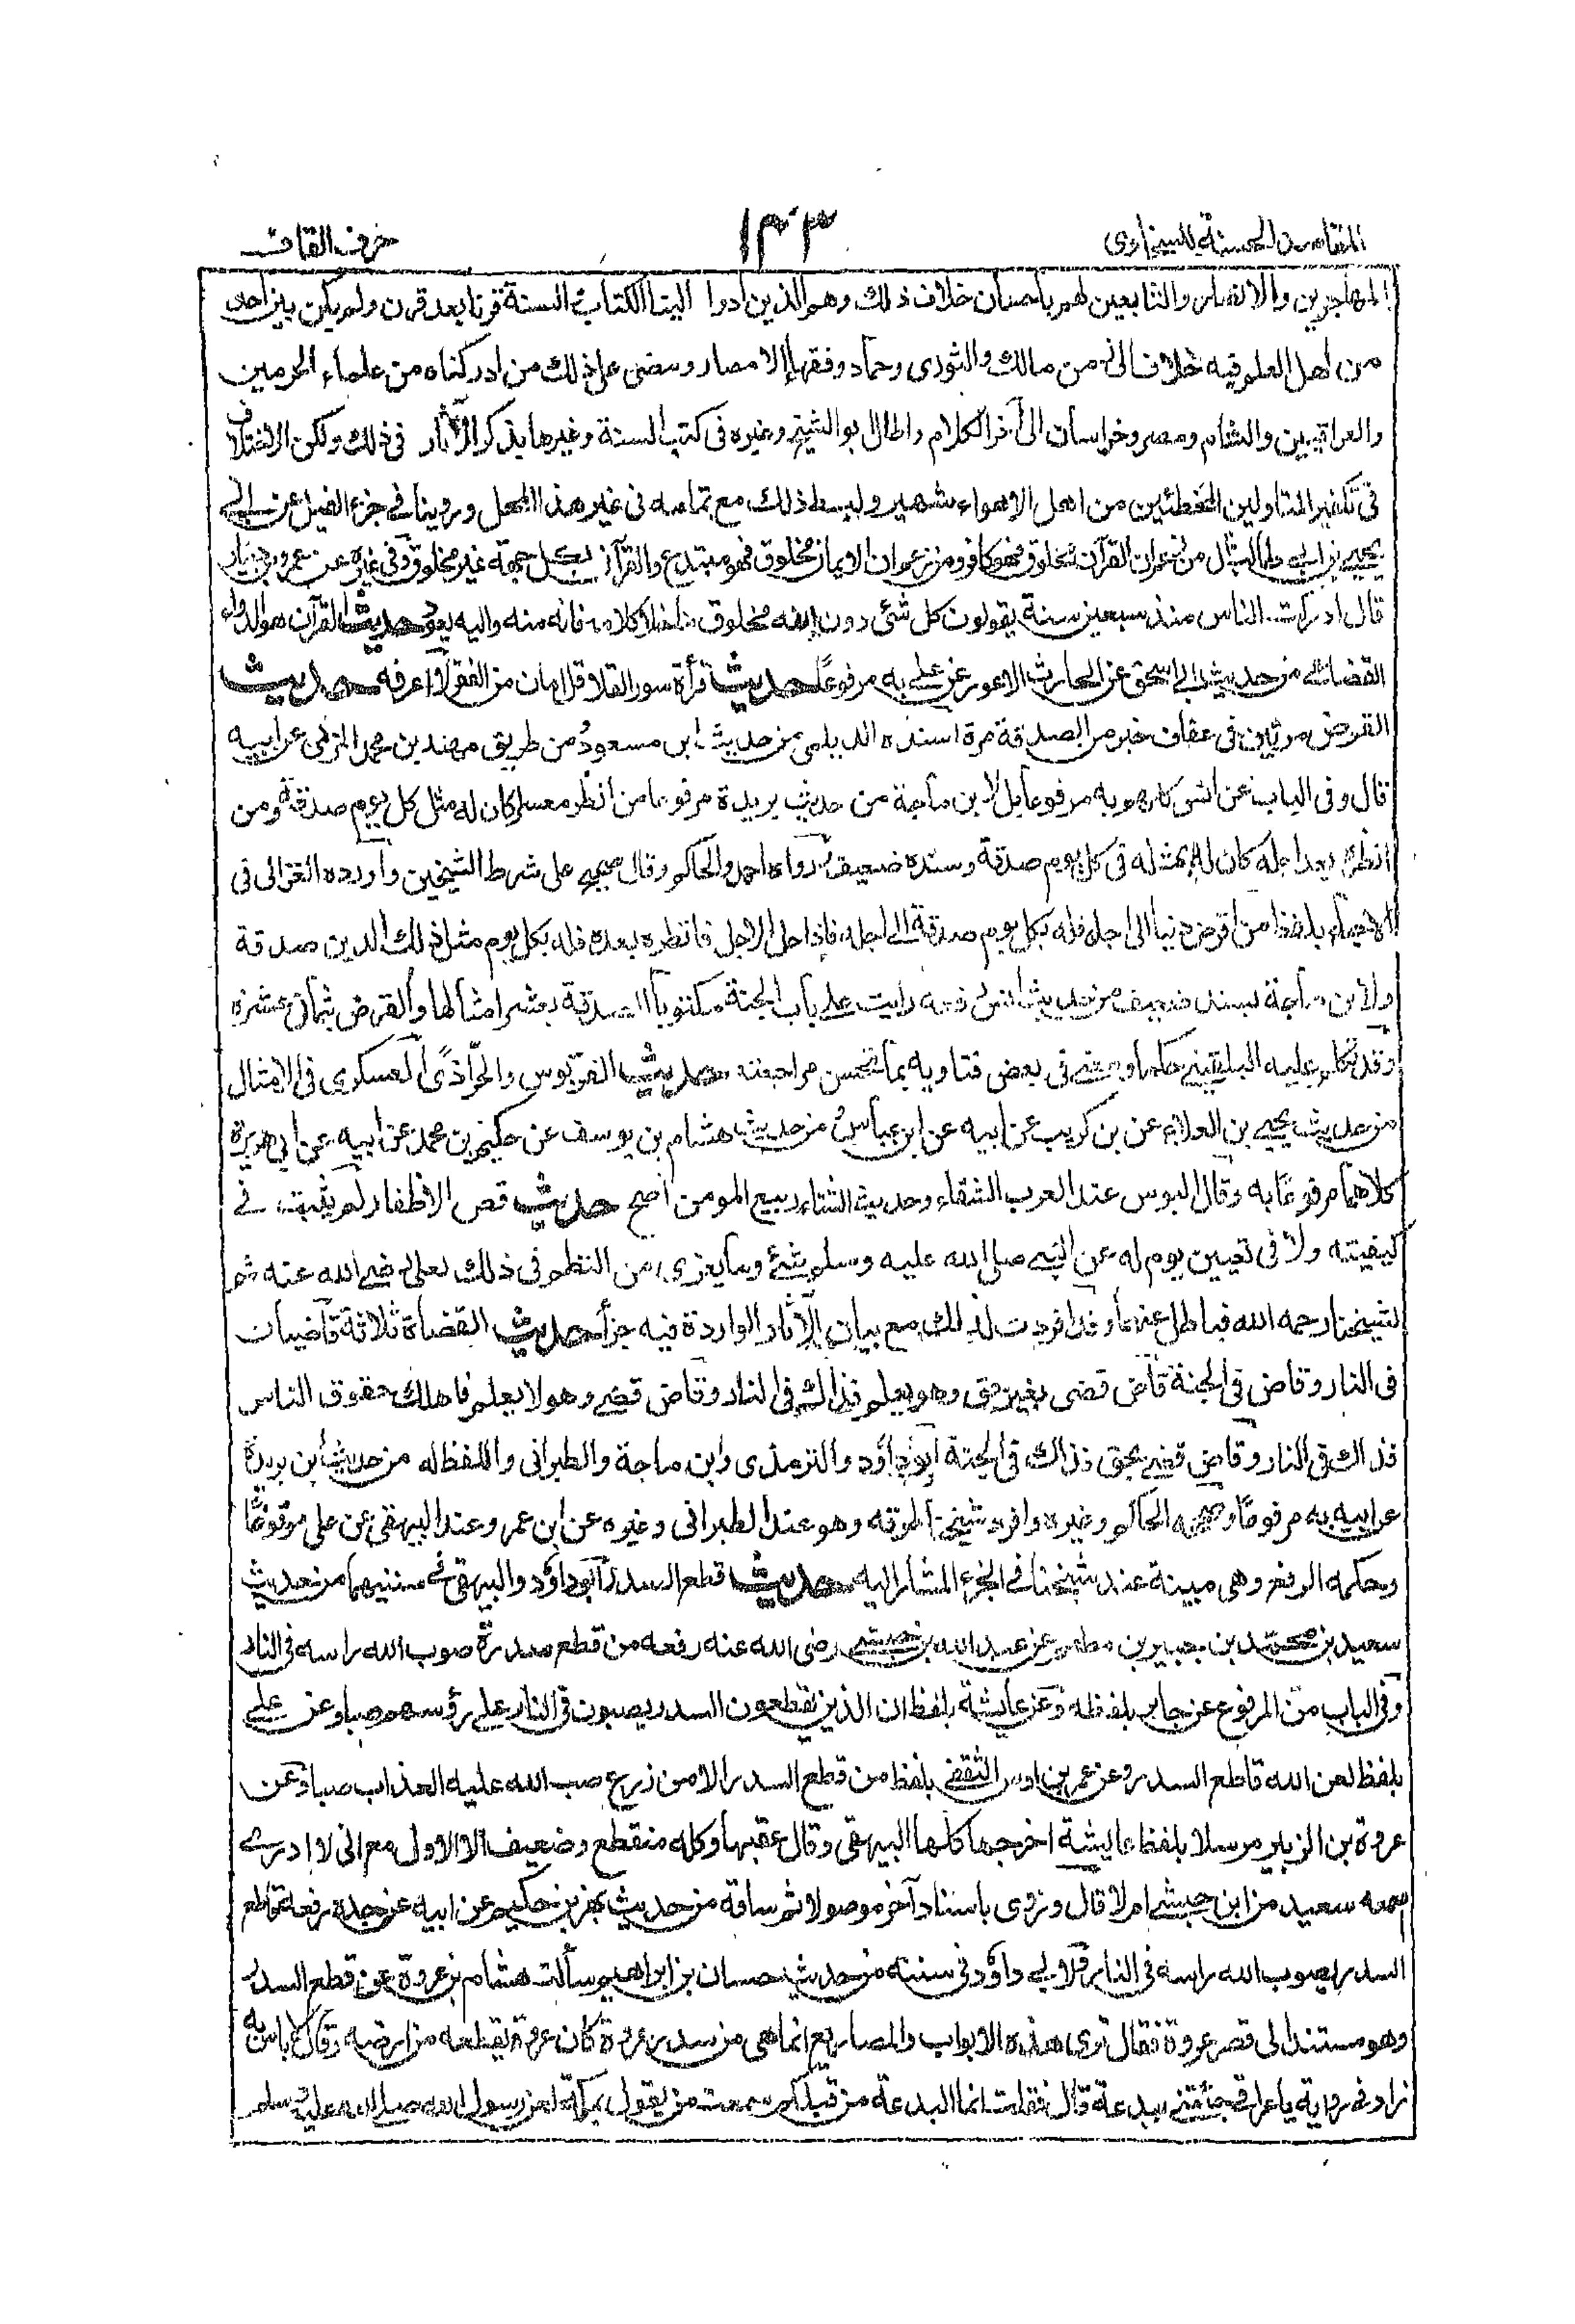 المقاصد الحسنة للسخاوي ١٤٣ حرف القاف
المهاجرين والانصار والتابعين لهم باحسان خلاف ذلك وهم الذين ادوا الينا الكتاب والسنة قرنا بعد قرن ولم يكن بين احد
من اهل العلم فيه خلاف الى زمن مالك والثوري وحماد وفقهاء الامصار ومضى على ذلك من ادركناه من علماء الحرمين
والعراقيين والشام ومصر وخراسان الى آخر الكلام واطال ابو الشيخ وغيره في كتب السنة وغيرها بذكر الآثار في ذلك ولكن الاختلاف
في تكفير المتاولين المخطئين من اهل الاهواء شهير ولبسط ذلك مع تمامه في غير هذا المحل وروينا في جزء الفيل عن ابي
يحيى بن ابي طالب قال من زعم ان القرآن مخلوق فهو كافر ومن زعم ان الايمان مخلوق فهو مبتدع والقرآن بكل جهة غير مخلوق وفي غيره عن عمرو بن دينار
قال ادركت الناس منذ سبعين سنة يقولون كل شئ دون الله مخلوق ما خلا كلامه فانه منه واليه يعود حديث القرآن هو الدواء
القضاعي من حديث ابي اسحق عن الحارث الاعور عن علي به مرفوعًا حديث قرأة سور القلاقل امان من الفقر لا اعرفه حديث
القرض مرتين في عفاف خير من الصدقة مرة اسنده الديلمي من حديث ابن مسعود من طريق مهند بن محمد المزني عن ابيه
قال وفي الباب عن انس كارهويه مرفوعا بل لابن ماجة من حديث بريدة مرفوعا من انظر معسرا كان له مثل كل يوم صدقة ومن
انظره بعد اجله كان له بمثله في كل يوم صدقة وسنده ضعيف رواه احمد والحاكم وقال صحيح على شرط الشيخين واورده الغزالي في
الاحياء بلفظ من اقرض دنيا الى اجله فله بكل يوم صدقة الى اجله فاذا حل الاجل فانظره بعده فله بكل يوم مثل ذلك الدين صدقة
ولابن ماجة بسند ضعيف من حديث انس رفعه رايت على باب الجنة مكتوبا الصدقة بعشر امثالها والقرض بثمانى عشرة
وقد تكلم عليه البلقيني حكما ومعنى في بعض فتاويه بما تحسن مراجعته حديث القر بوس والحر أذى العسكري في الامثال
من حديث يحيى بن العلاء عن بن كريب عن ابيه عن ابن عباس ومن حديث هشام بن يوسف عن حكيم بن محمد عن ابيه عن ابي هريرة
كلاهما مرفوعًا به وقال البوس عند العرب الشقاء وحديث الشتاء ربيع المومن اصح حديث قص الاظفار لم يثبت في
كيفيته ولا في تعيين يوم له عن النبي صلى الله عليه وسلم شئ وما يعزى من النظم في ذلك لعلي رضي الله عنه ثم
لشيخنا رحمه الله فباطل عنهما وقد افردت لذلك مع بيان الآثار الواردة فيه جزأ حديث القضاة ثلاثة قاضيان
في النار وقاض في الجنة قاض قضى بغير حق وهو يعلم فذاك في النار وقاض قضى وهو لا يعلم فاهلك حقوق الناس
فذاك في النار وقاض قضى بحق فذاك في الجنة ابو داؤد والترمذي وابن ماجة والطبراني واللفظ له من حديث ابن بريدة
عن ابيه به مرفوعًا وصححه الحاكم وغيره وافرد شيخنا طرقه وهو عند الطبراني وغيره عن ابن عمر وعند البيهقي عن علي موقوفًا
وحكمه الرفع وهي مبينة عند شيخنا في الجزء المشار اليه حديث قطع السدر ابو داؤد والبيهقي في سننيهما من حديث
سعيد بن محمد بن جبير بن مطعم عن عبد الله بن حبشي رضى الله عنه رفعه من قطع سدرة صوب الله راسه في النار
وفي الباب من المرفوع عن جابر بلفظه وعن عايشة بلفظ ان الذين يقطعون السدر يصبون في النار على رؤسهم صبا وعن علي
بلفظ لعن الله قاطع السدر وعن عمرو بن اوس الثقفي بلفظ من قطع السدر الا من زرع صب الله عليه العذاب صبا وعن
عروة بن الزبير مرسلا بلفظ عايشة اخرجها كلها البيهقي وقال عقبها وكله منقطع وضعيف الا الاول مع انى لا ادرى
اسمعه سعيد من ابن حبشي ام لا قال وروى باسناد آخر موصولا ثم ساقه من حديث بهز بن حكيم عن ابيه عن جده رفعه قاطع
السدر يصوب الله راسه في النار قلا بي داؤد في سننه من حديث حسان بن ابراهيم سألت هشام بن عروة عن قطع السدر
وهو مستند الى قصر عروة فقال ترى هذه الابواب والمصاريع انما هي من سدر عروة كان عروة يقطعه من ارضه وقال لا باس به
زاد في رواية يا عراقي جئتني ببدعة قال فقلت انما البدعة من قبلكم سمعت من يقول بمكة لعن رسول الله صلى الله عليه وسلم